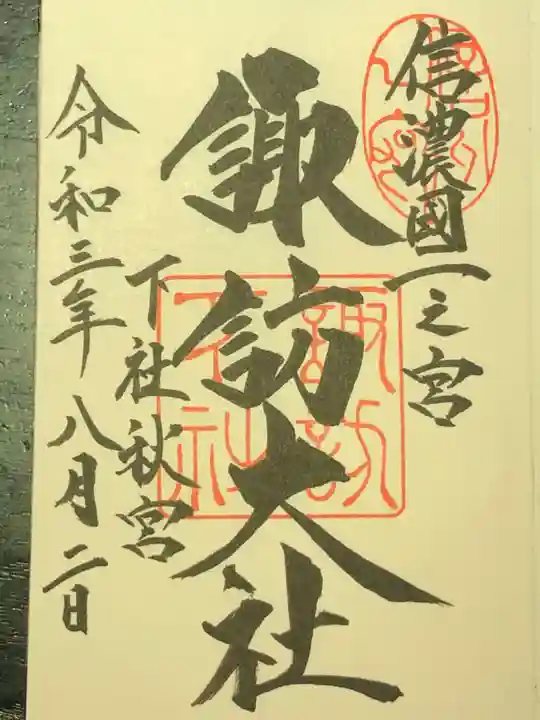 信濃國一之宮
諏訪大社
下社秋宮
令和三年八月二日
諏訪
下社